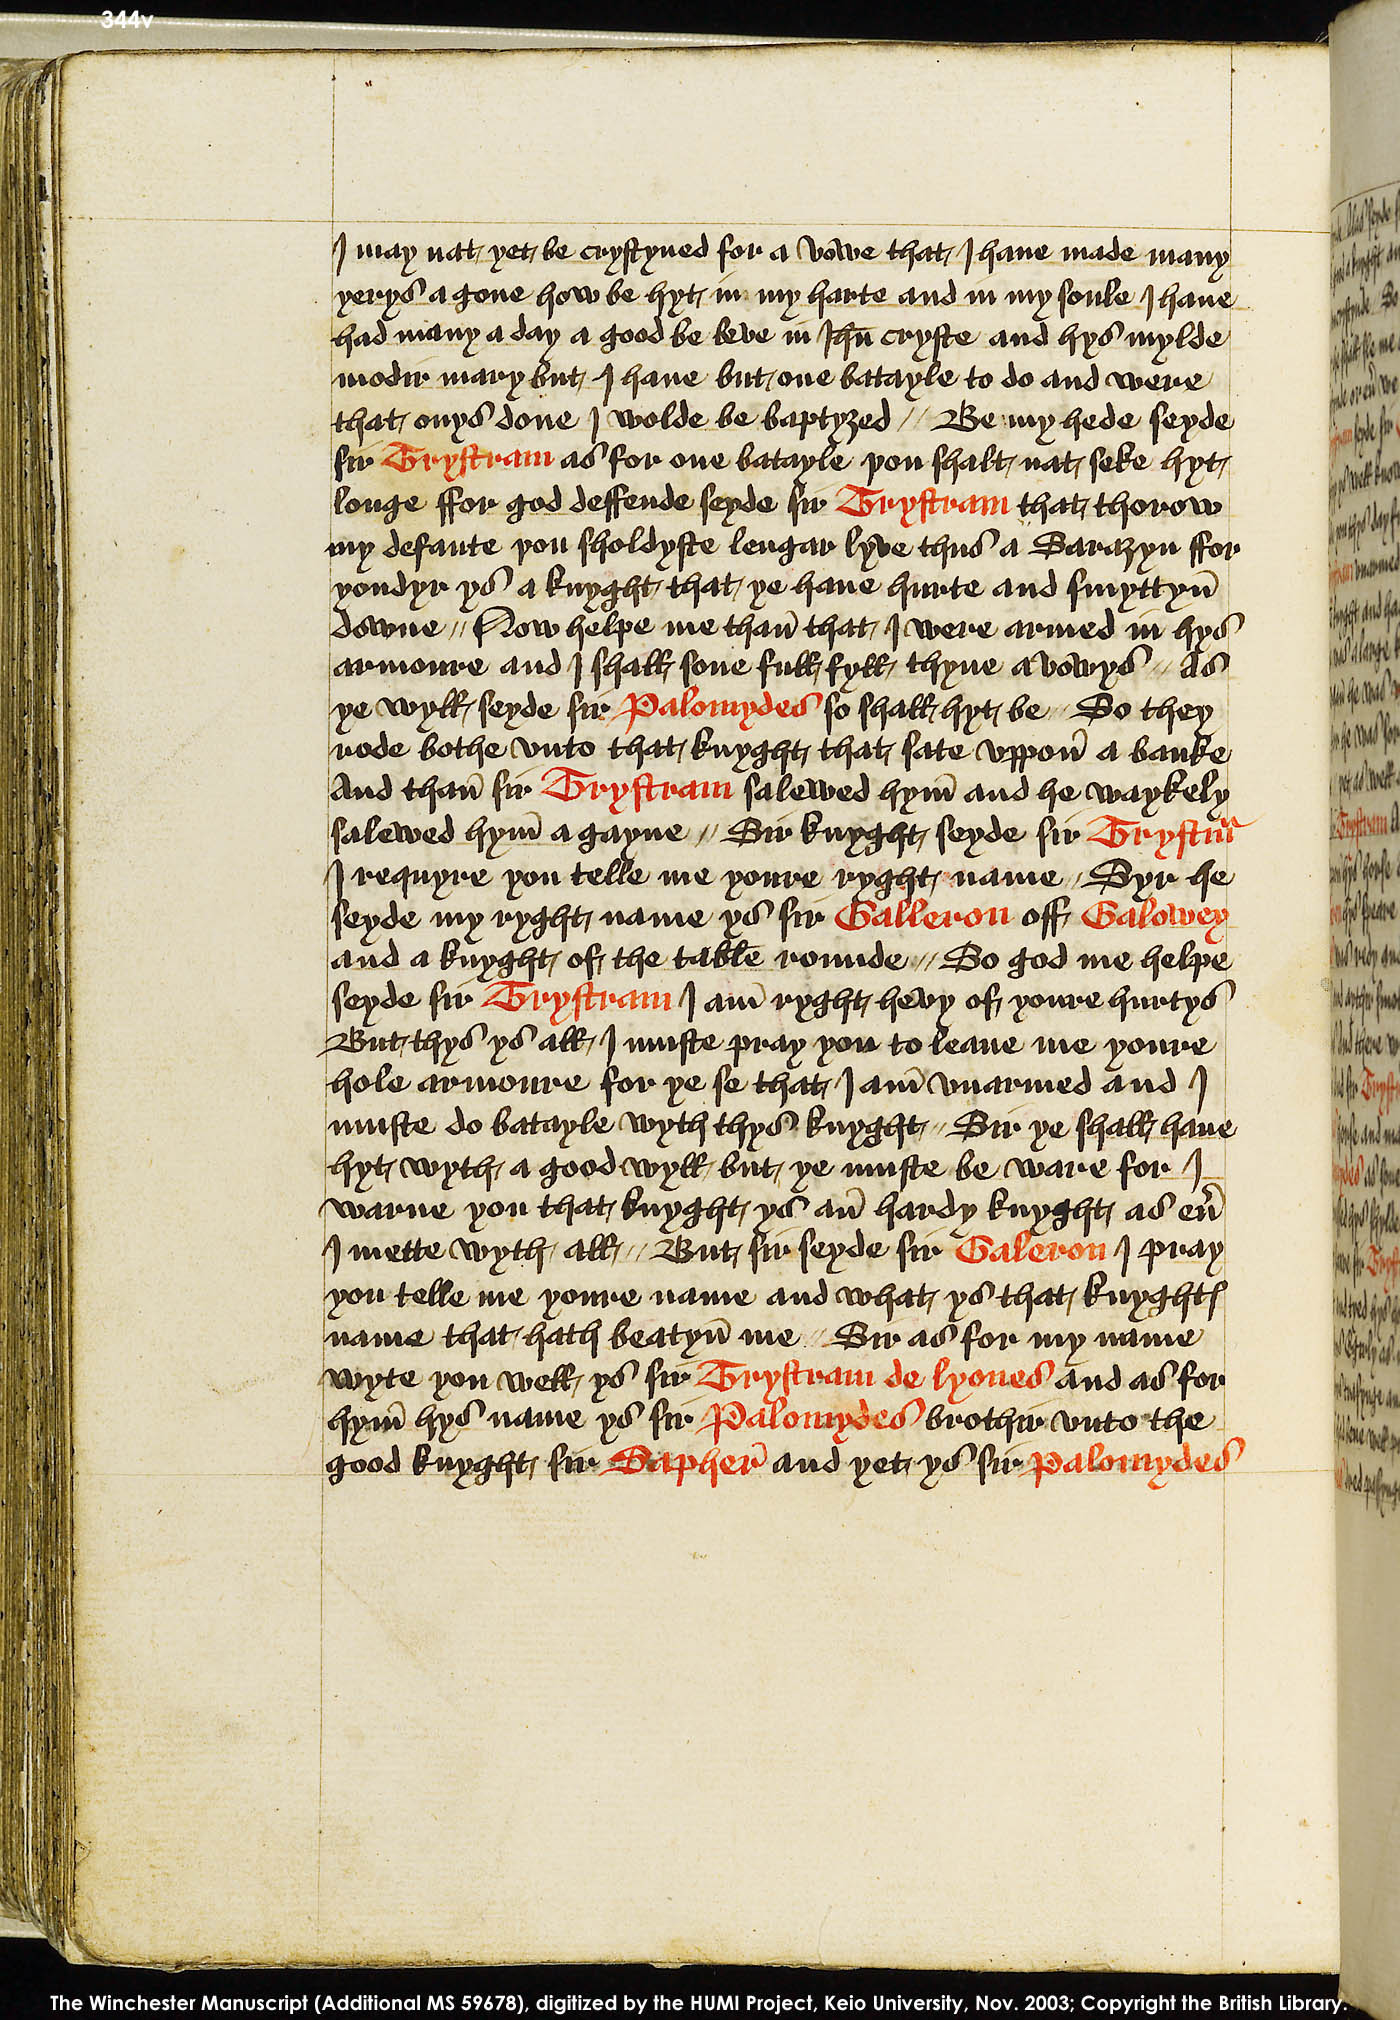 344v
I may nat yet be crystyned for a vowe that I haue made many
yerys a gone how be hyt in my harte and in my soule I haue
had many a day a good be leve in Jhu cryste and hys mylde
modir mary but I haue but one batayle to do and were
that onys done I wolde be baptyzed // Be my hede seyde
sir Trystram as for one batayle you shalt nat seke hyt
longe ffor god deffende seyde sir Trystram that thorow
my defaute you sholdyste lengar lyve thus a Sarazyn ffor
yondyr ys a knyght that ye haue hurte and smyttyn̄
downe // Now helpe me than̄ that I were armed in hys
armoure and I shall sone full fyll thyne avowys // As
ye wyll seyde sir Palomydes so shall hyt be // So they
rode bothe vnto that knyght that sate vppon̄ a banke
And than̄ sir Trystram salewed hym̄ and he waykely
salewed hym̄ a gayne // Sir knyght seyde sir Trystrā
I requyre you telle me youre ryght name // Syr he
seyde my ryght name ys sir Galleron off Galowey
and a knyght of the table rounde // So god me helpe
seyde sir Trystram I am̄ ryght hevy of youre hurtys
But thys ys all I muste pray you to leaue me youre
hole armoure for ye se that I am̄ vnarmed and I
muste do batayle wyth thys knyght // Sir ye shall haue
hyt wyth a good wyll but ye muste be ware for I
warne you that knyght ys an̄ hardy knyght as eū
I mette wyth all // But sir seyde sir Galeron I pray
you telle me youre name and what ys that knyghtꝭ
name that hath beatyn̄ me // Sir as for my name
wyte you well ys sir Trystram de lyones and as for
hym̄ hys name ys sir Palomydes brothir vnto the
good knyght sir Sapher̄ and yet ys sir Palomydes
The Winchester Manuscript (Additional MS 59678), digitized by the HUMI Project, Keio University, Nov. 2003; Copyright the British Library.